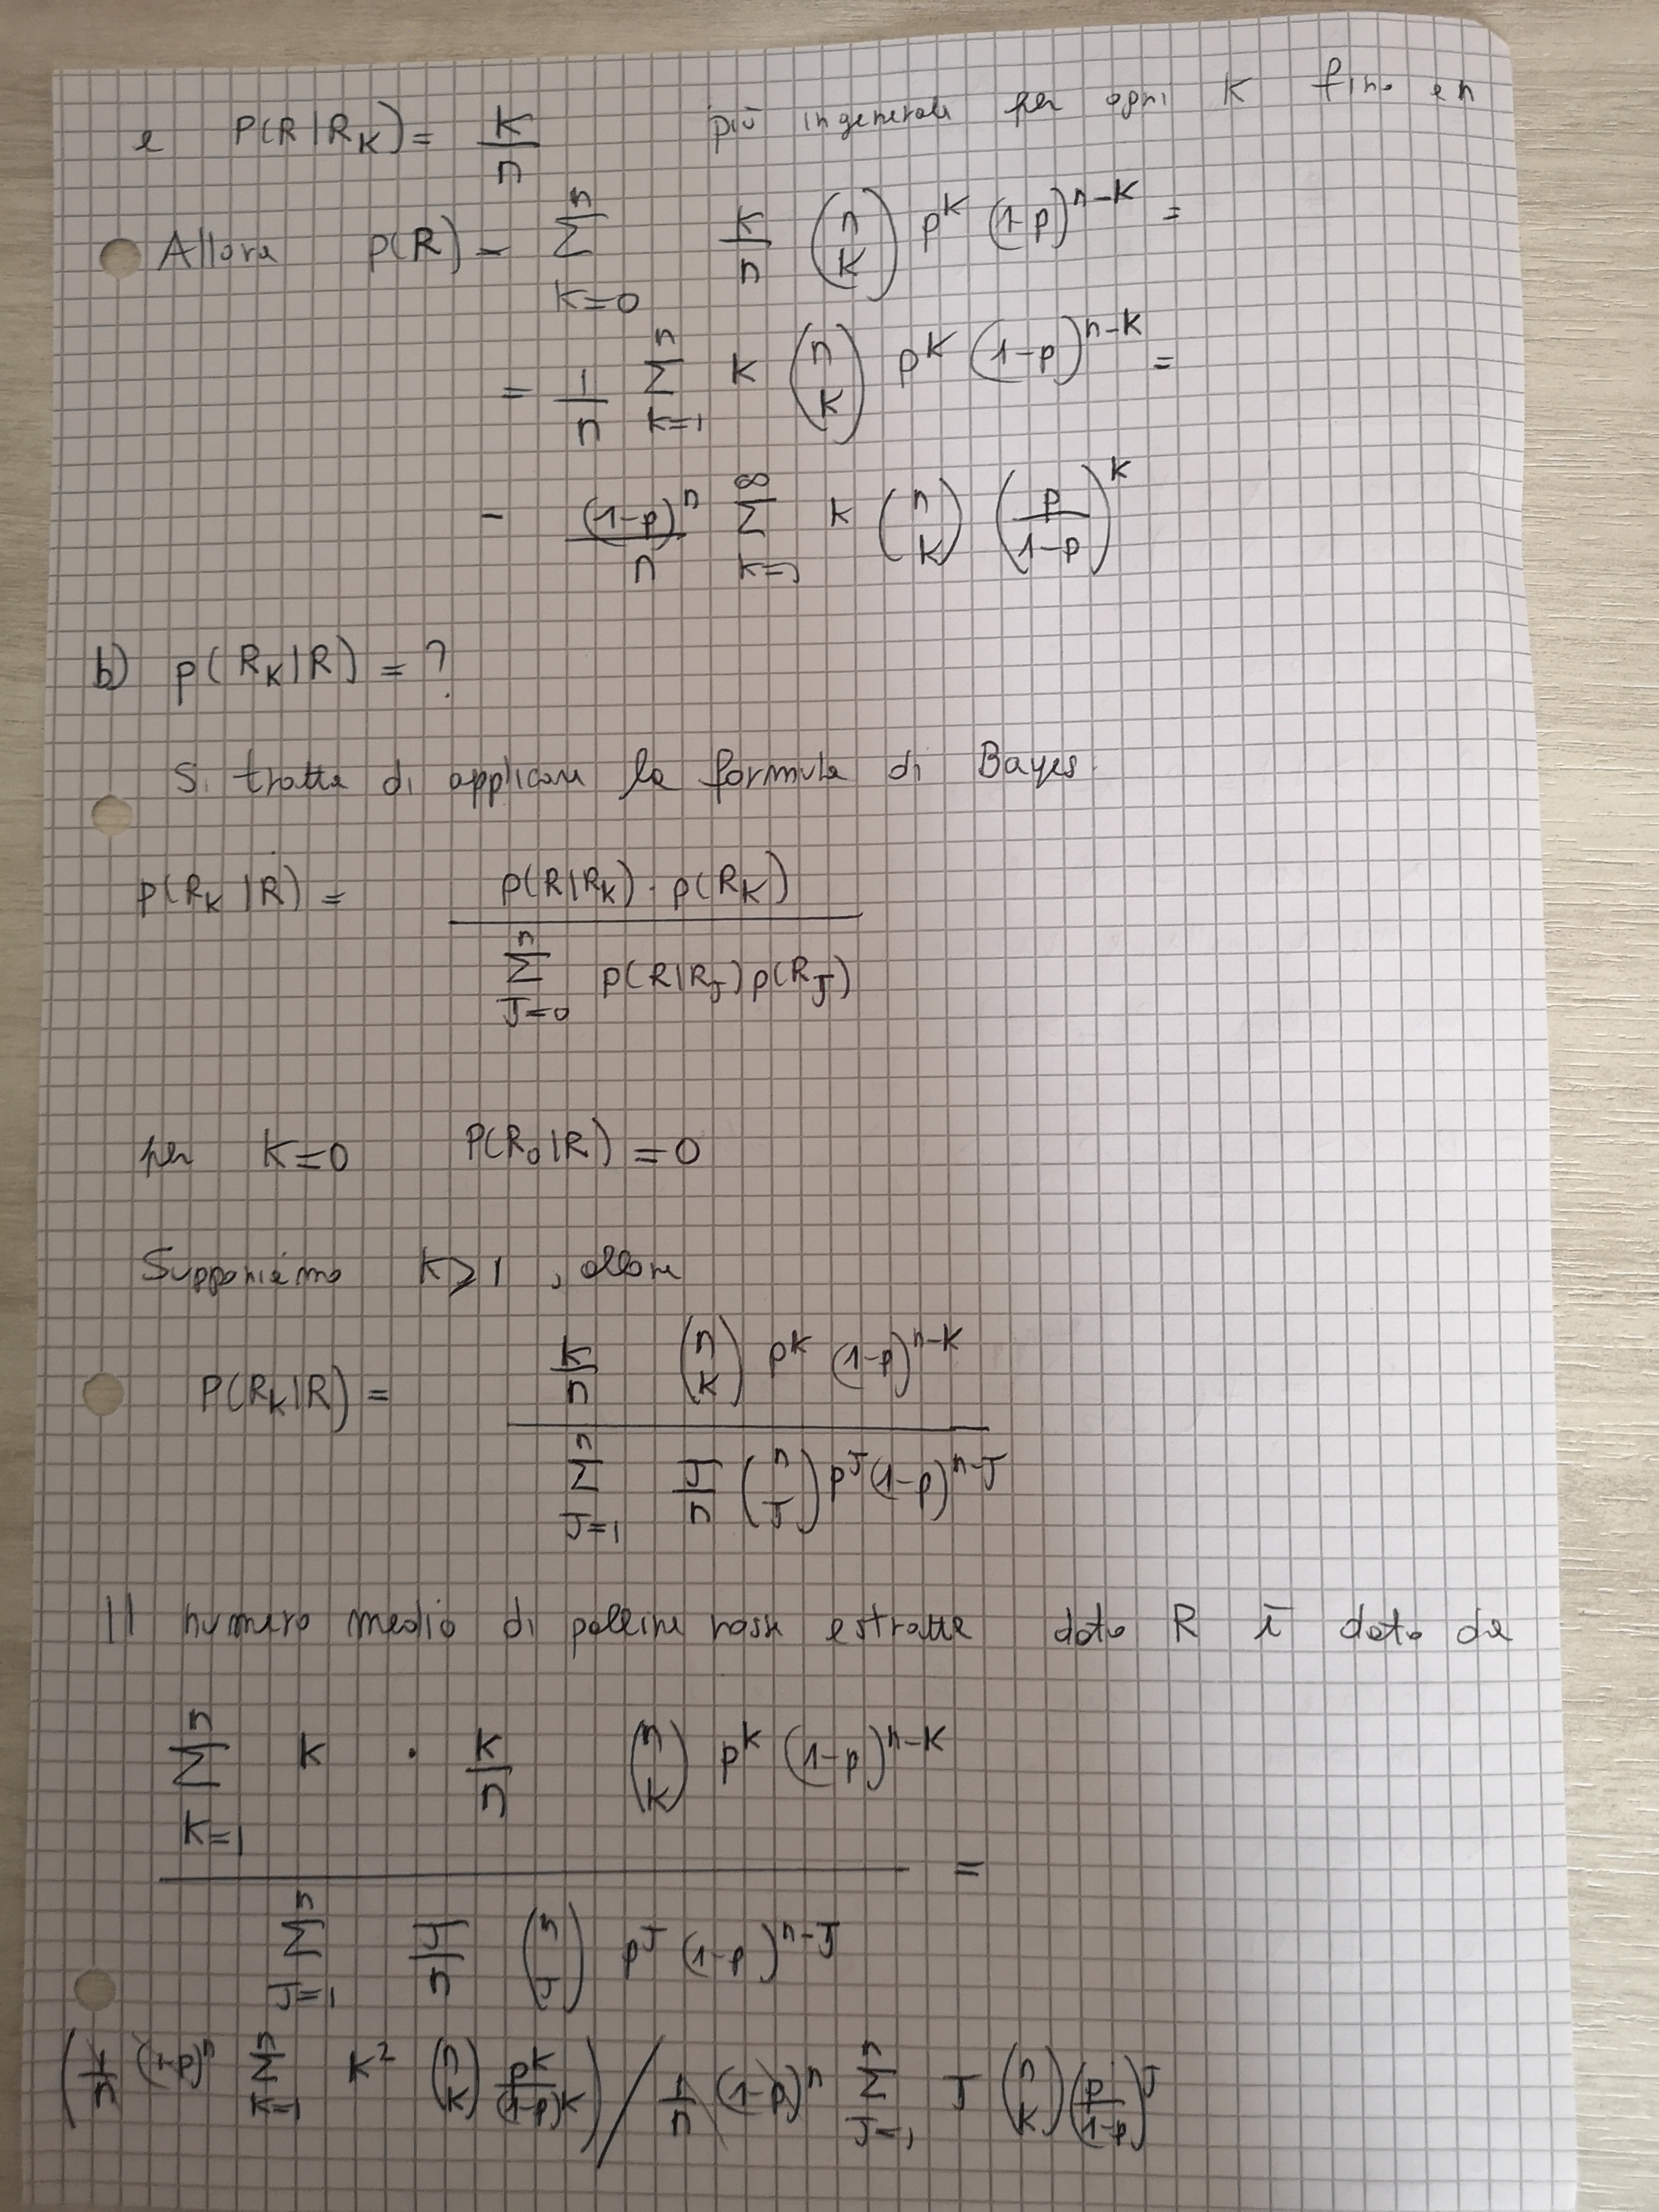 e P(R|R_K) = K/n più in generale per ogni K fino a n
Allora p(R) = Σ_{K=0}^{n} K/n (n K) p^K (1-p)^{n-K} =
= 1/n Σ_{K=1}^{n} K (n K) p^K (1-p)^{n-K} =
- (1-p)^n/n Σ_{K=1}^{∞} K (n K) (p/(1-p))^K
b) p(R_K|R) = ?
Si tratta di applicare la formula di Bayes
p(R_K|R) = p(R|R_K) · p(R_K) / Σ_{J=0}^{n} p(R|R_J) p(R_J)
per K=0 P(R_0|R) = 0
Supponiamo K≥1, allora
P(R_K|R) = K/n (n K) p^K (1-p)^{n-K} / Σ_{J=1}^{n} J/n (n J) p^J (1-p)^{n-J}
Il numero medio di palline rosse estratte dato R è dato da
Σ_{K=1}^{n} K · K/n (n K) p^K (1-p)^{n-K} / Σ_{J=1}^{n} J/n (n J) p^J (1-p)^{n-J} =
(1/n (1-p)^n Σ_{K=1}^{n} K² (n K) p^K/(1-p)^K) / 1/n (1-p)^n Σ_{J=1}^{n} J (n K) (p/(1-p))^J